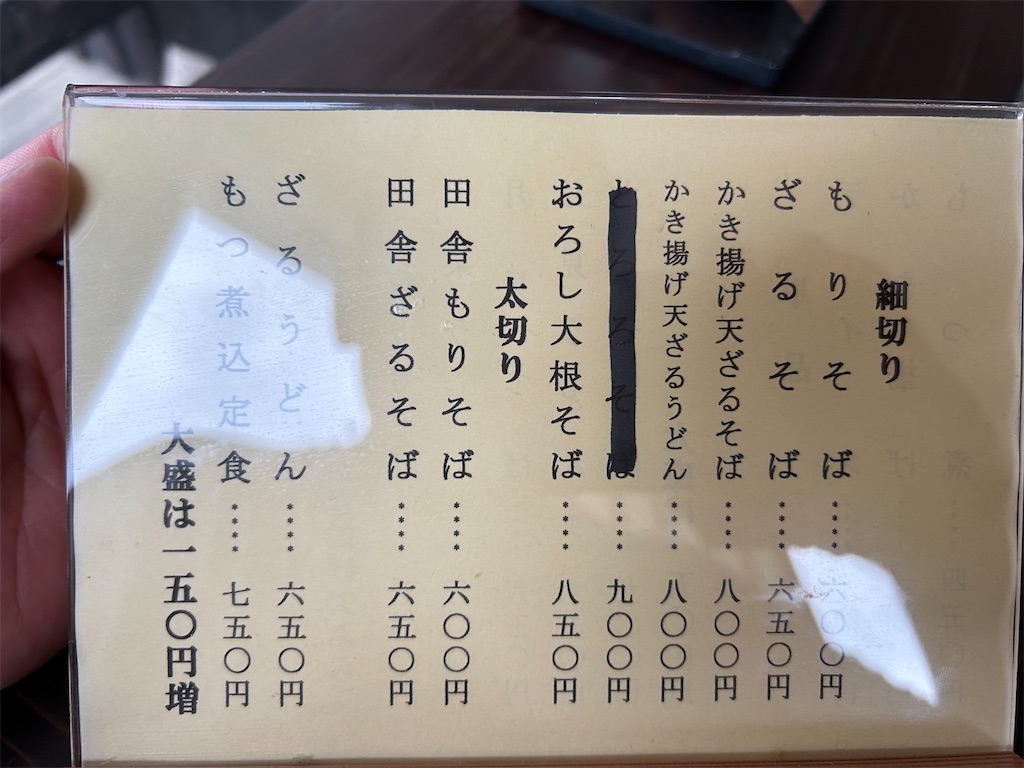 細切り
もりそば‥‥六〇〇円
ざるそば‥‥六五〇円
かき揚げ天ざるそば‥‥八〇〇円
かき揚げ天ざるうどん‥‥八〇〇円
とろろそば‥‥九〇〇円
おろし大根そば‥‥八五〇円
太切り
田舎もりそば‥‥六〇〇円
田舎ざるそば‥‥六五〇円
ざるうどん‥‥六五〇円
もつ煮込定食‥‥七五〇円
大盛は一五〇円増